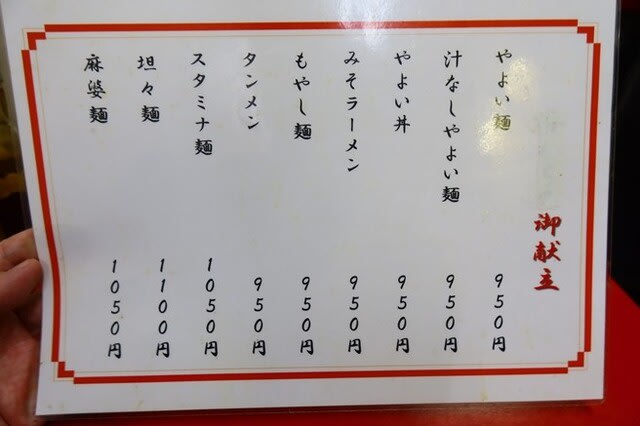 御献立
やよい麺 950円
汁なしやよい麺 950円
やよい丼 950円
みそラーメン 950円
もやし麺 950円
タンメン 950円
スタミナ麺 1050円
坦々麺 1100円
麻婆麺 1050円